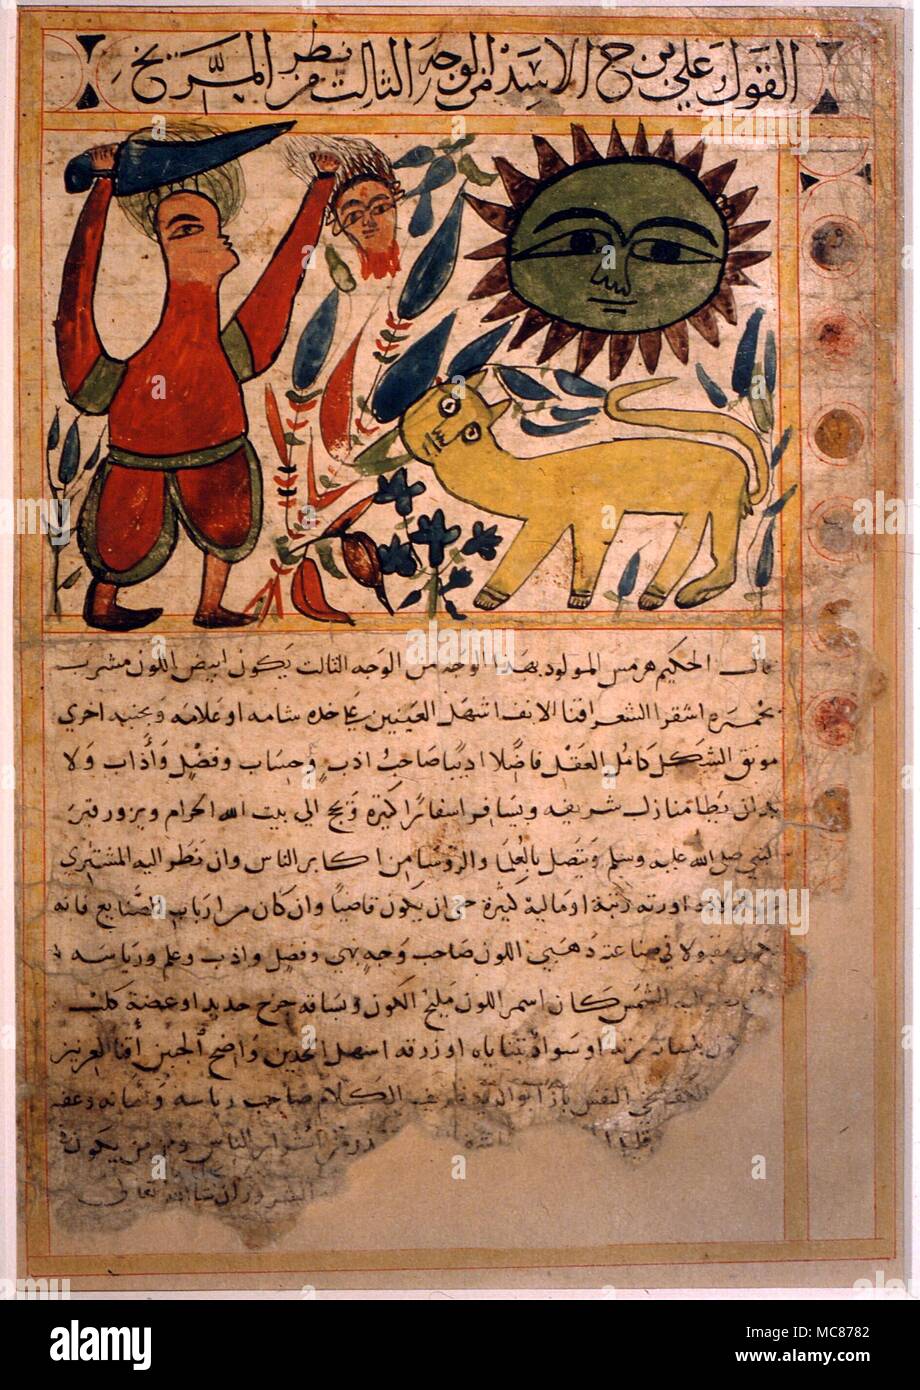 القول على برج الاسد من الوجه الثالث من نظر المريخ
قال الحكيم هرمس المولود بهذا الوجه من الوجه الثالث يكون ابيض اللون مشرب
بحمرة اشقر الشعر اقنا الانف اشهل العينين على خده شامه او علامه وبجنبه اخرى
مونق الشكل كامل العقل فاضلا اديبا صاحب ادب وحساب وفضل وأداب ولا
بد ان يطا منازل شريفه ويسافر اسفارا كثيرة ويحج الى بيت الله الحرام ويزور قبر
النبي صلى الله عليه وسلم ويتصل بالعلما والروسا من اكابر الناس وان نظر اليه المشترى
اورته رتبة او مالية كبيرة حتى ان يكون قاضيا وان كان من ارباب الصنايع فانه
مقبولا في صناعته ذهبي اللون صاحب وجه بهي وفضل وادب وعلم ورياسه
الشمس كان اسمر اللون مليح الكون وبساقه جرح حديد او عضة كلب
او سواد بثناياه او زرقه اسهل الخدين واضح الجبين اقنا العرنين
سخي النفس الكلام صاحب رياسه
الناس يكون
ان شا الله تعالى
alamy
Image ID: MC8782
www.alamy.com